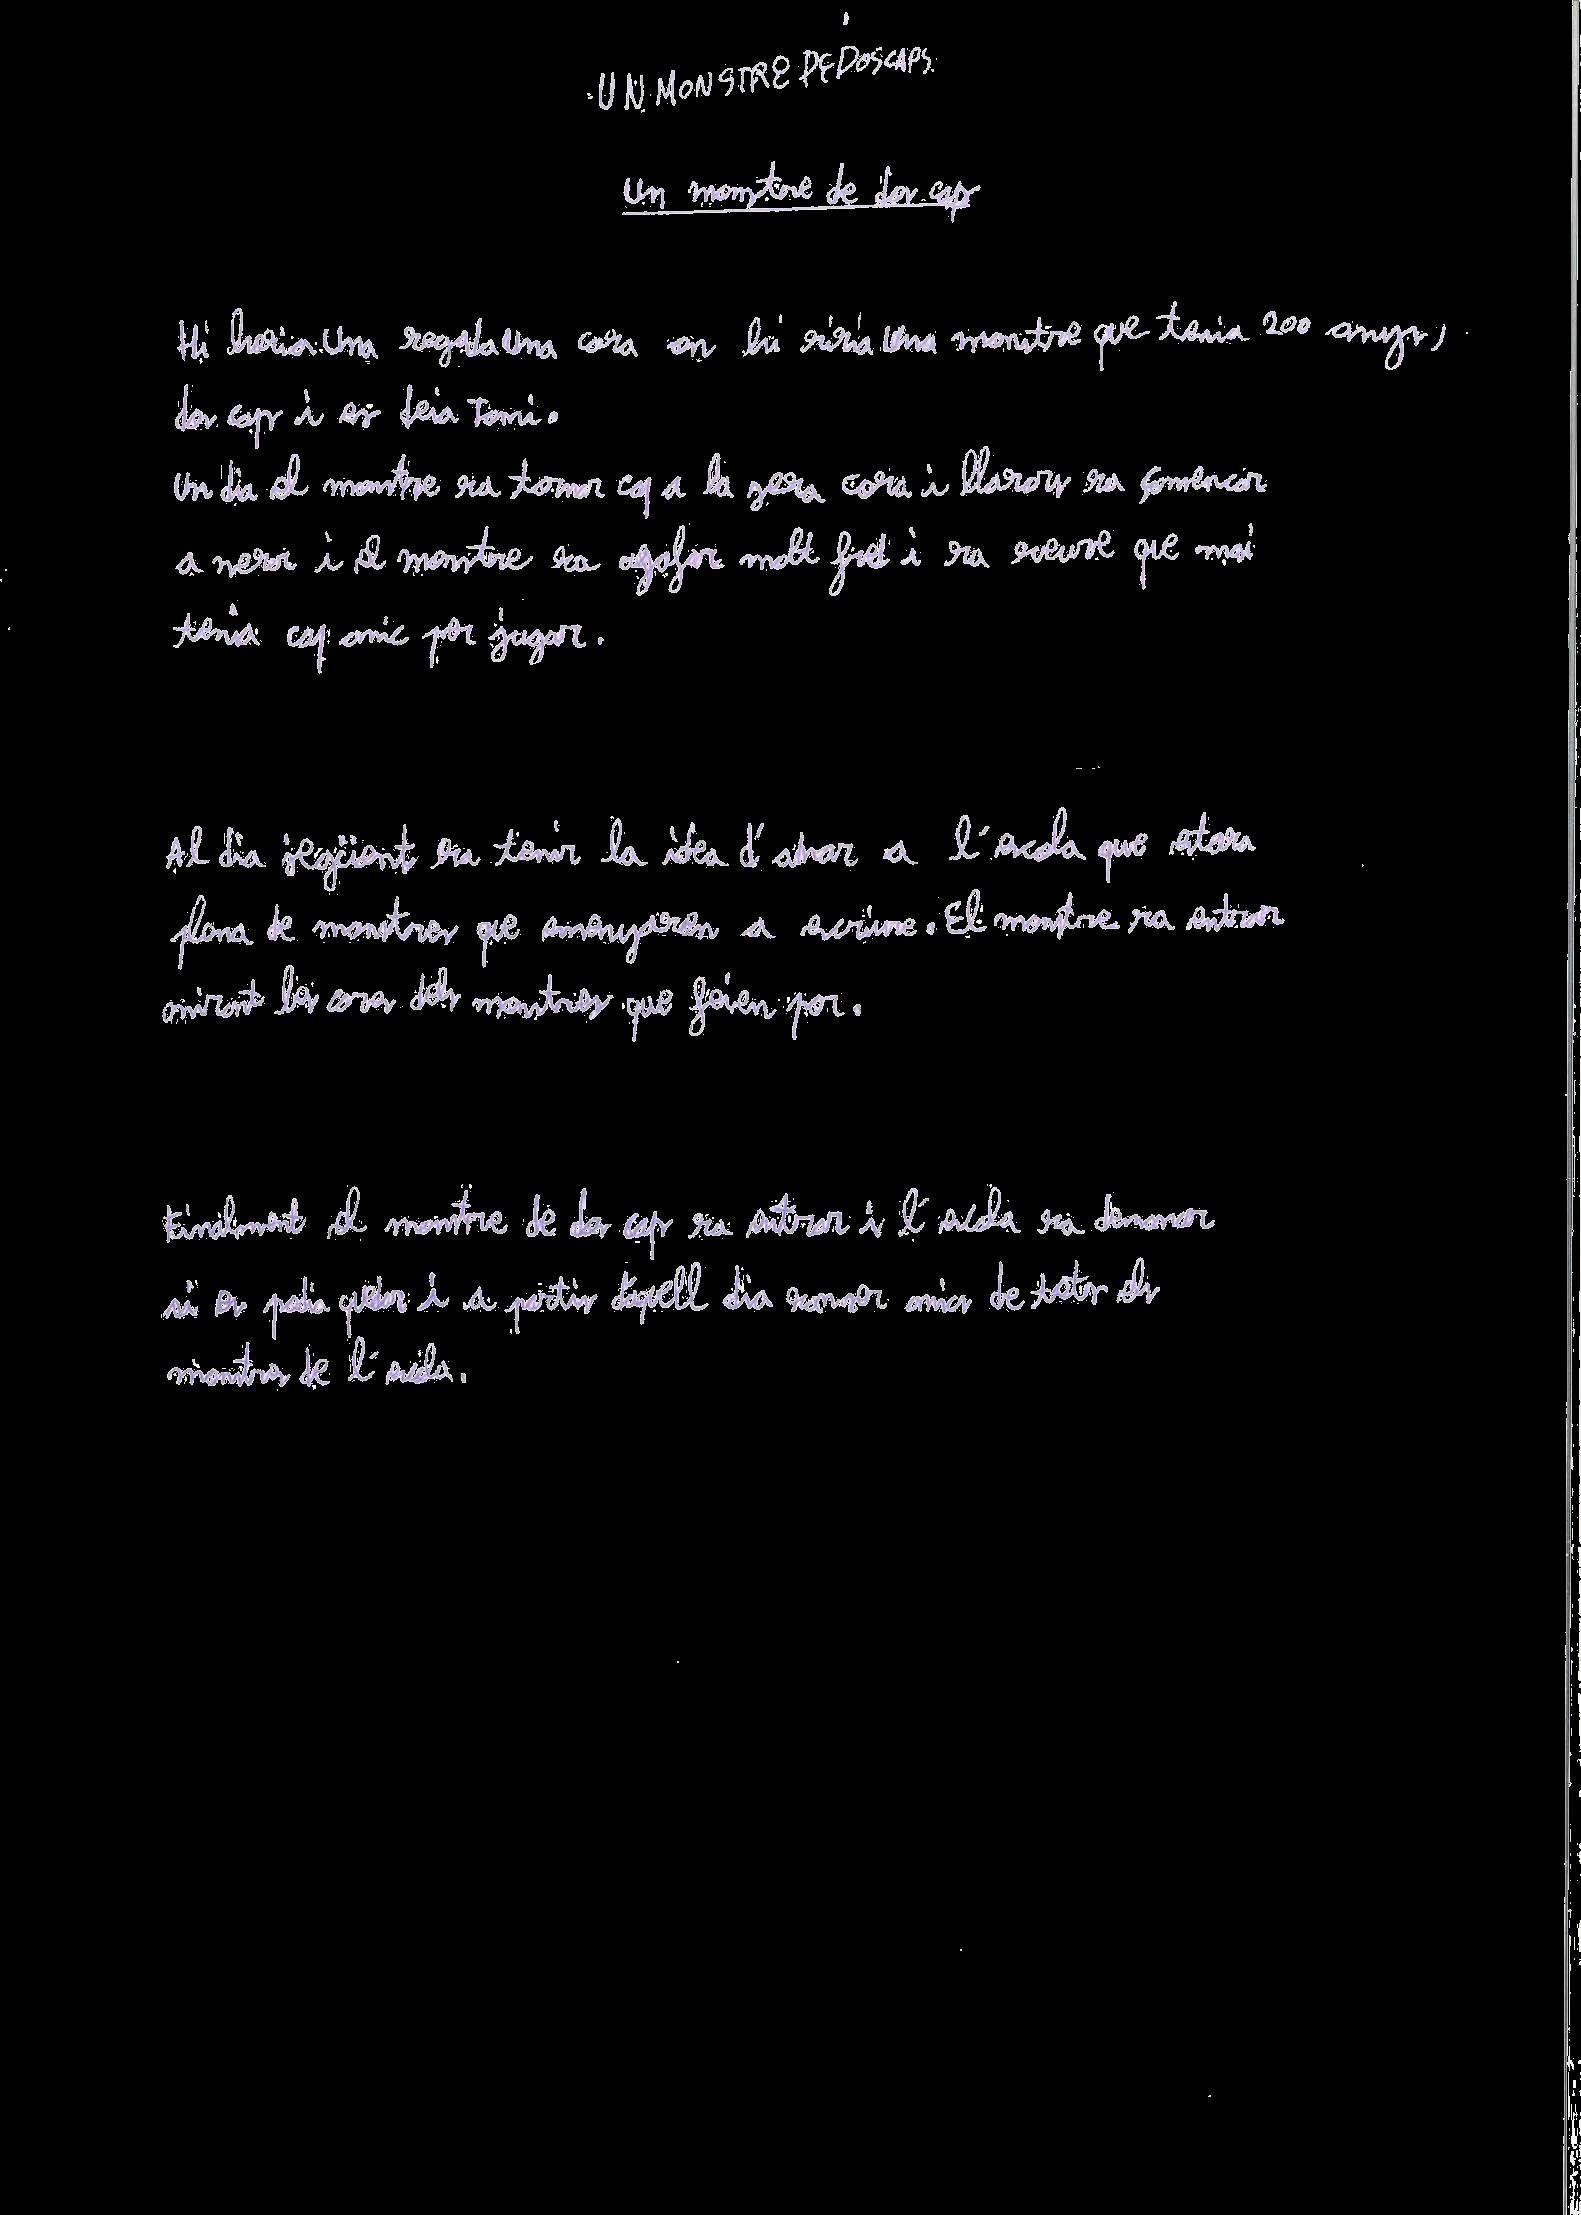 UN MONSTRE DE DOS CAPS
Un monstre de dos caps
Hi havia una vegada una casa on hi vivia una monstre que tenia 200 anys,
dos caps i es deia Tomi.
Un dia el monstre va tornar cap a la seva casa i llavors va començar
a nevar i el monstre va agafar molt fred i va veure que mai
tenia cap amic per jugar.
Al dia següent va tenir la idea d'anar a l'escola que estava
plena de monstres que ensenyaven a escriure. El monstre va entrar
mirant les cares dels monstres que feien por.
Finalment el monstre de dos caps va entrar i l'escola va demanar
si es podia quedar i a partir daquell dia amics de tots els
monstres de l'escola.